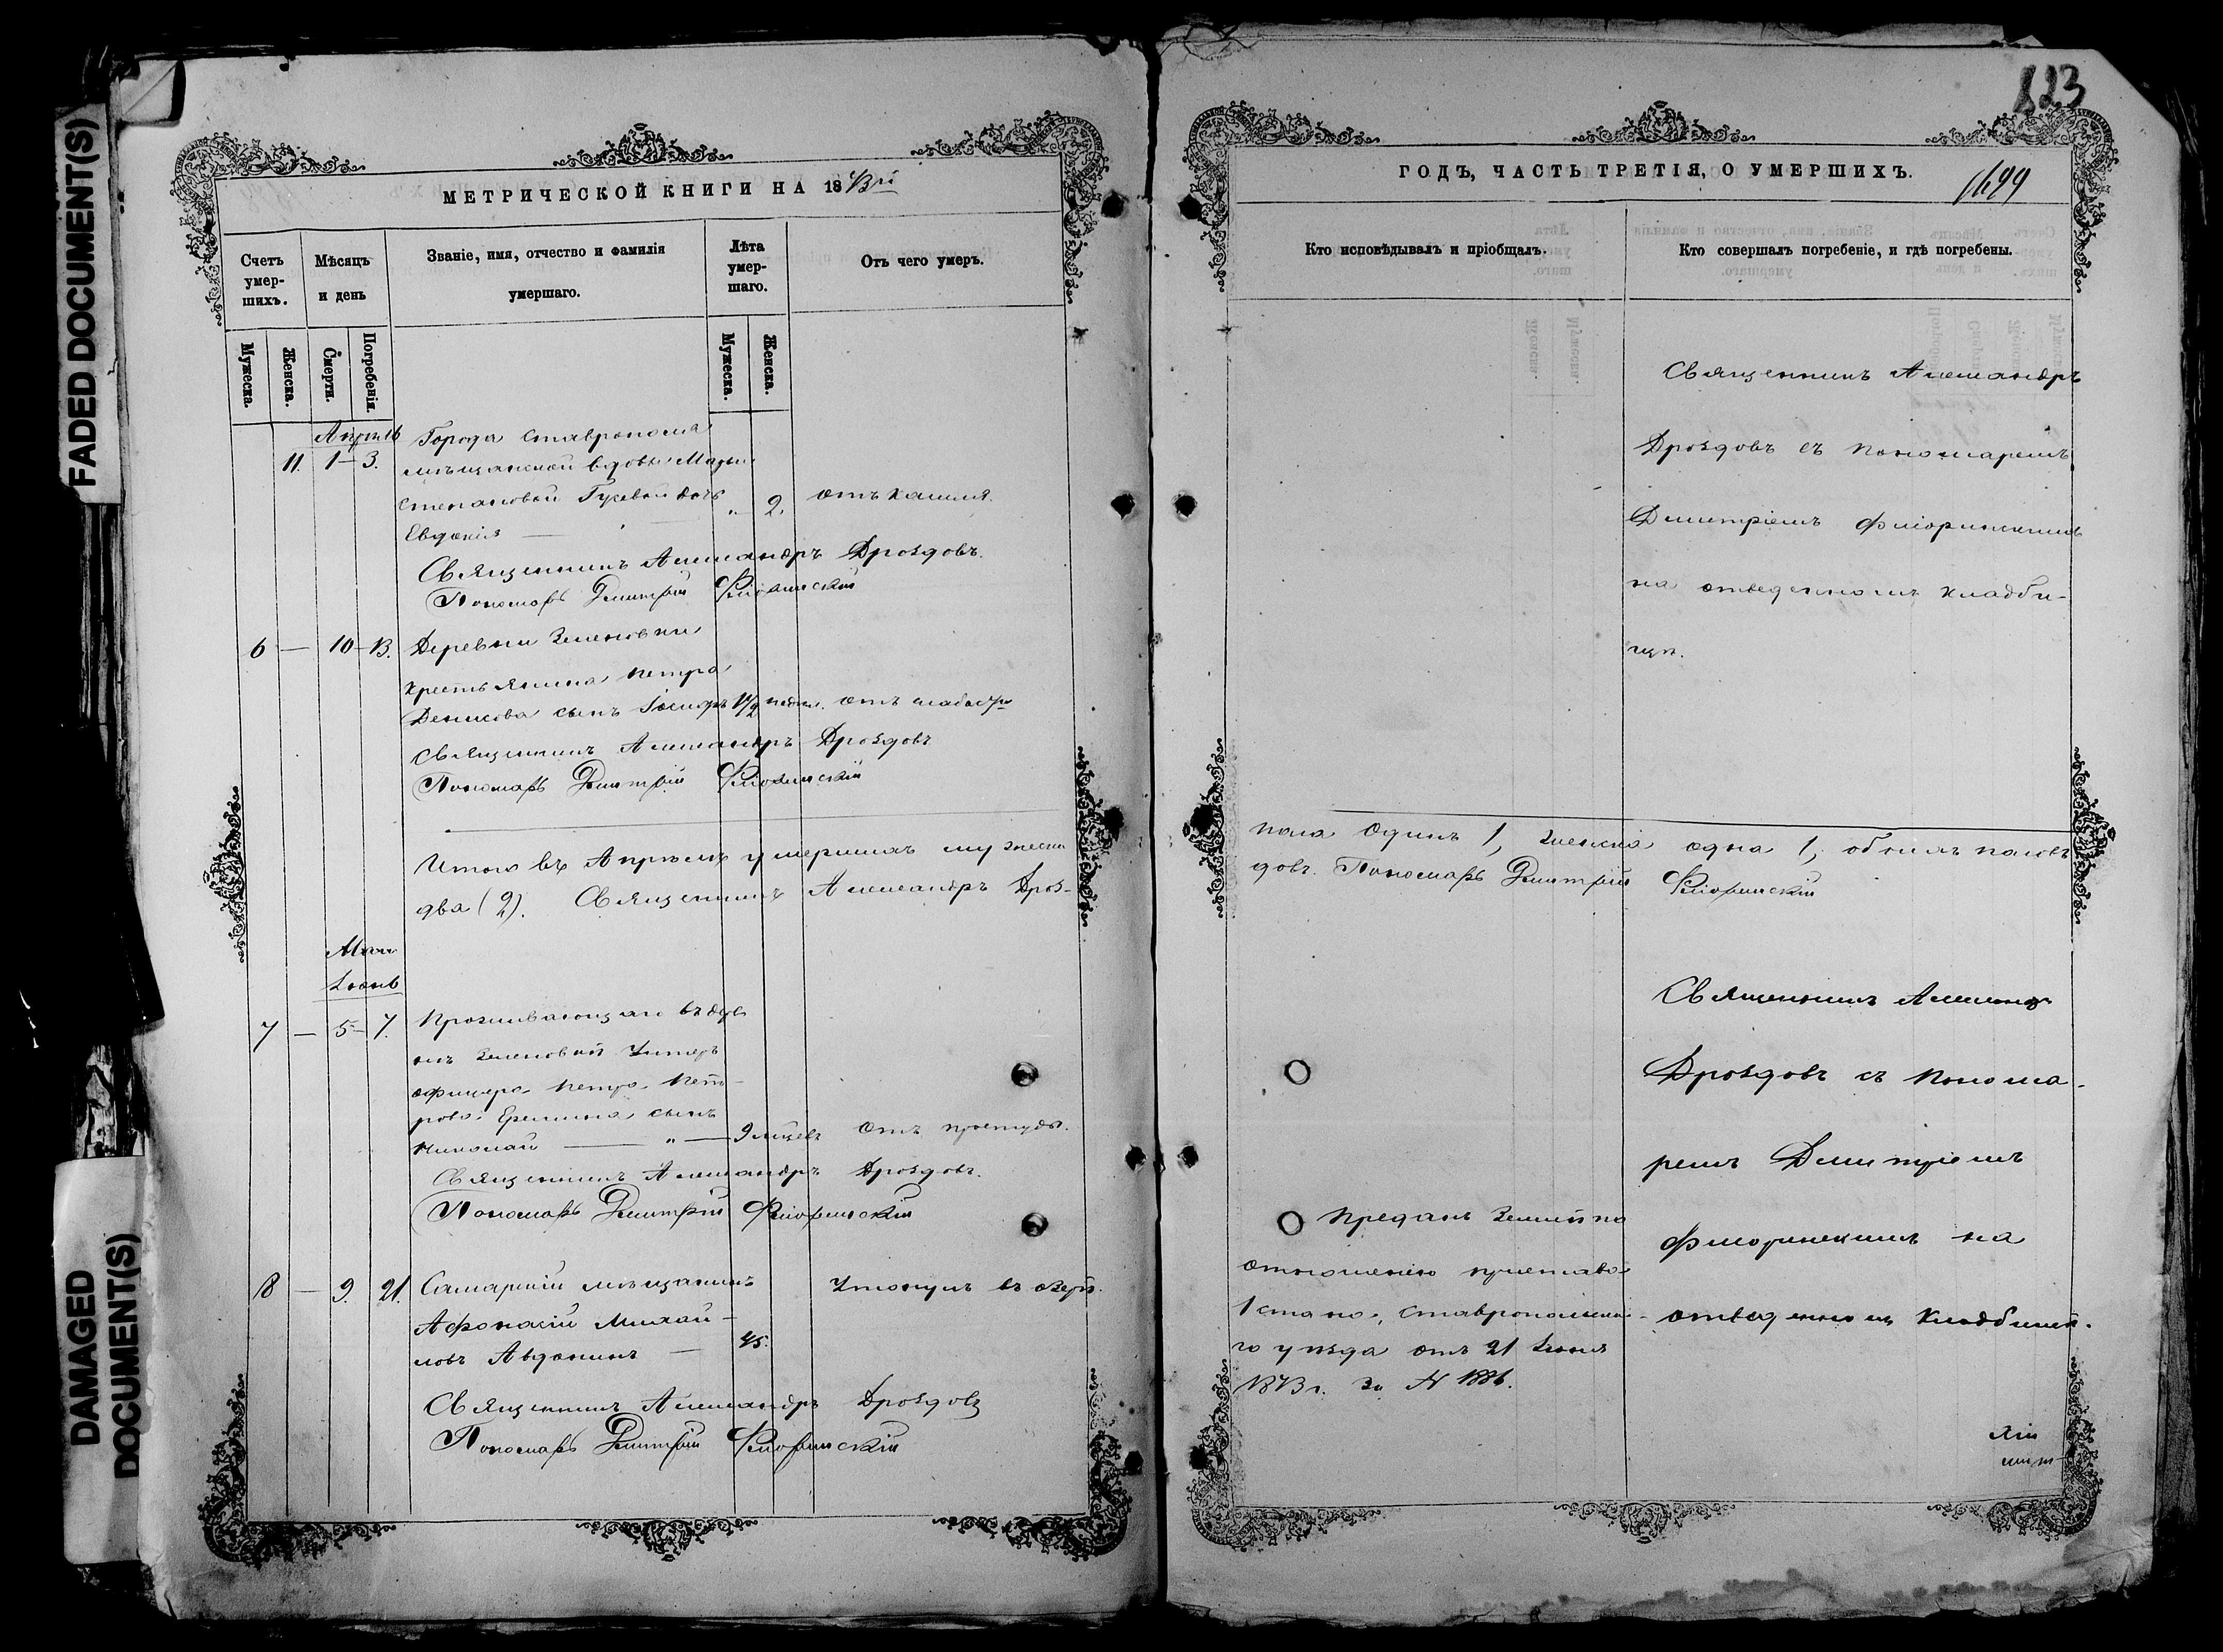 FADED DOCUMENT(S)
DAMAGED
DOCUMENT(S)
МЕТРИЧЕСКОЙ КНИГИ НА 1873й
Счетъ умер-шихъ.
Мѣсяцъ и день
Званіе, имя, отчество и фамилія умершаго.
Лѣта умер-шаго.
Отъ чего умеръ.
Мужеска.
Женска.
Смерти.
Погребенія.
Мужеска.
Женска.
Апрѣль
Города Ставрополя
11. 1 – 3. мѣщанской вдовы Марьи
Степановой Гусевой дочь „ 2. отъ кашля.
Евдокія —
Священникъ Александръ Дроздовъ.
Пономарь Дмитрій Флоринскій
6 — 10 – 13. Деревни Зеленовки
крестьянина Петра
Денисова сынъ 1½ недѣл. отъ слабости
Священникъ Александръ Дроздовъ
Пономарь Дмитрій Флоринскій
Итого въ Апрѣлѣ умершихъ мужеска
два (2). Священникъ Александръ Дроз-
Май
Іюнь
7 — 5 – 7. Проживающаго въ дер
Зеленовкѣ Унтеръ
офицера Петра Пет-
рова Еремина сынъ
Николай — „ — 9 мѣсев отъ простуды.
Священникъ Александръ Дроздовъ.
Пономарь Дмитрій Флоринскій
8 — 9. 21. Самарскій мѣщанинъ Утонулъ въ озерѣ.
Афонасій Михай-
ловъ Авдонинъ — 45.
Священникъ Александръ Дроздовъ
Пономарь Дмитрій Флоринскій
823
ГОДЪ, ЧАСТЬ ТРЕТІЯ, О УМЕРШИХЪ.
1699
Кто исповѣдывалъ и пріобщалъ.
Кто совершалъ погребеніе, и гдѣ погребены.
Священникъ Александръ
Дроздовъ съ пономаремъ
Дмитріемъ Флоринскимъ
на отведенномъ кладби-
щѣ.
пола одинъ 1, женска одна 1, обоихъ половъ
довъ. Пономарь Дмитрій Флоринскій
Священникъ
Дроздовъ съ понома-
ремъ Дмитріемъ
Флоринскимъ на
отведенномъ кладбищѣ.
Преданъ землѣ по
отношенію пристава
1 стана, Ставропольска-
го уѣзда отъ 21 Іюня
1873 г. за № 1886.